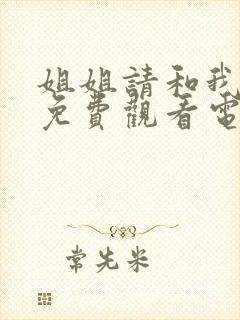 姐姐請和我
免費觀看電
常先米